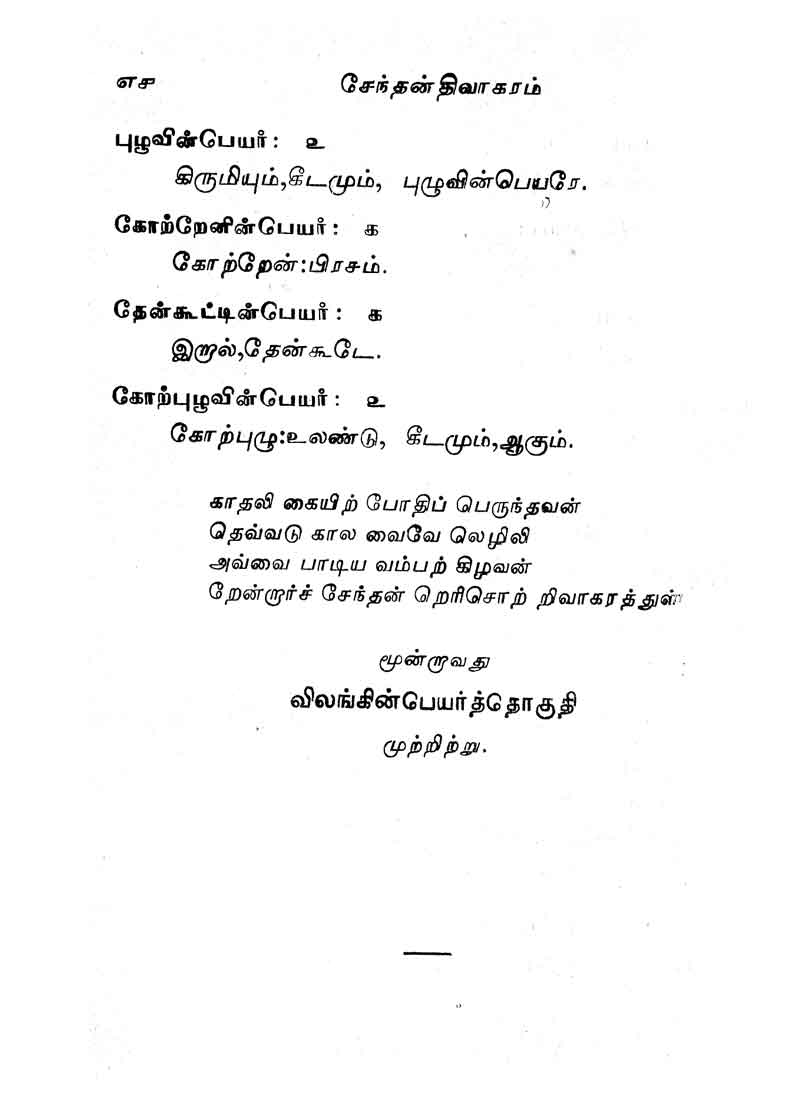 எசு சேந்தன் திவாகரம்
புழுவின்பெயர் : உ
கிருமியும்,கீடமும், புழுவின்பெயரே.
கோற்றேனின்பெயர் : க
கோற்றேன்:பிரசம்.
தேன்கூட்டின்பெயர் : க
இறால்,தேன்கூடே.
கோற்புழுவின்பெயர் : உ
கோற்புழு:உலண்டு, கீடமும்,ஆகும்.
காதலி கையிற் போதிப் பெருந்தவன்
தெவ்வடு கால வைவே லெழிலி
அவ்வை பாடிய வம்பற் கிழவன்
றேன்றூர்ச் சேந்தன் றெரிசொற் றிவாகரத்துள்
மூன்றாவது
விலங்கின்பெயர்த்தொகுதி
முற்றிற்று.